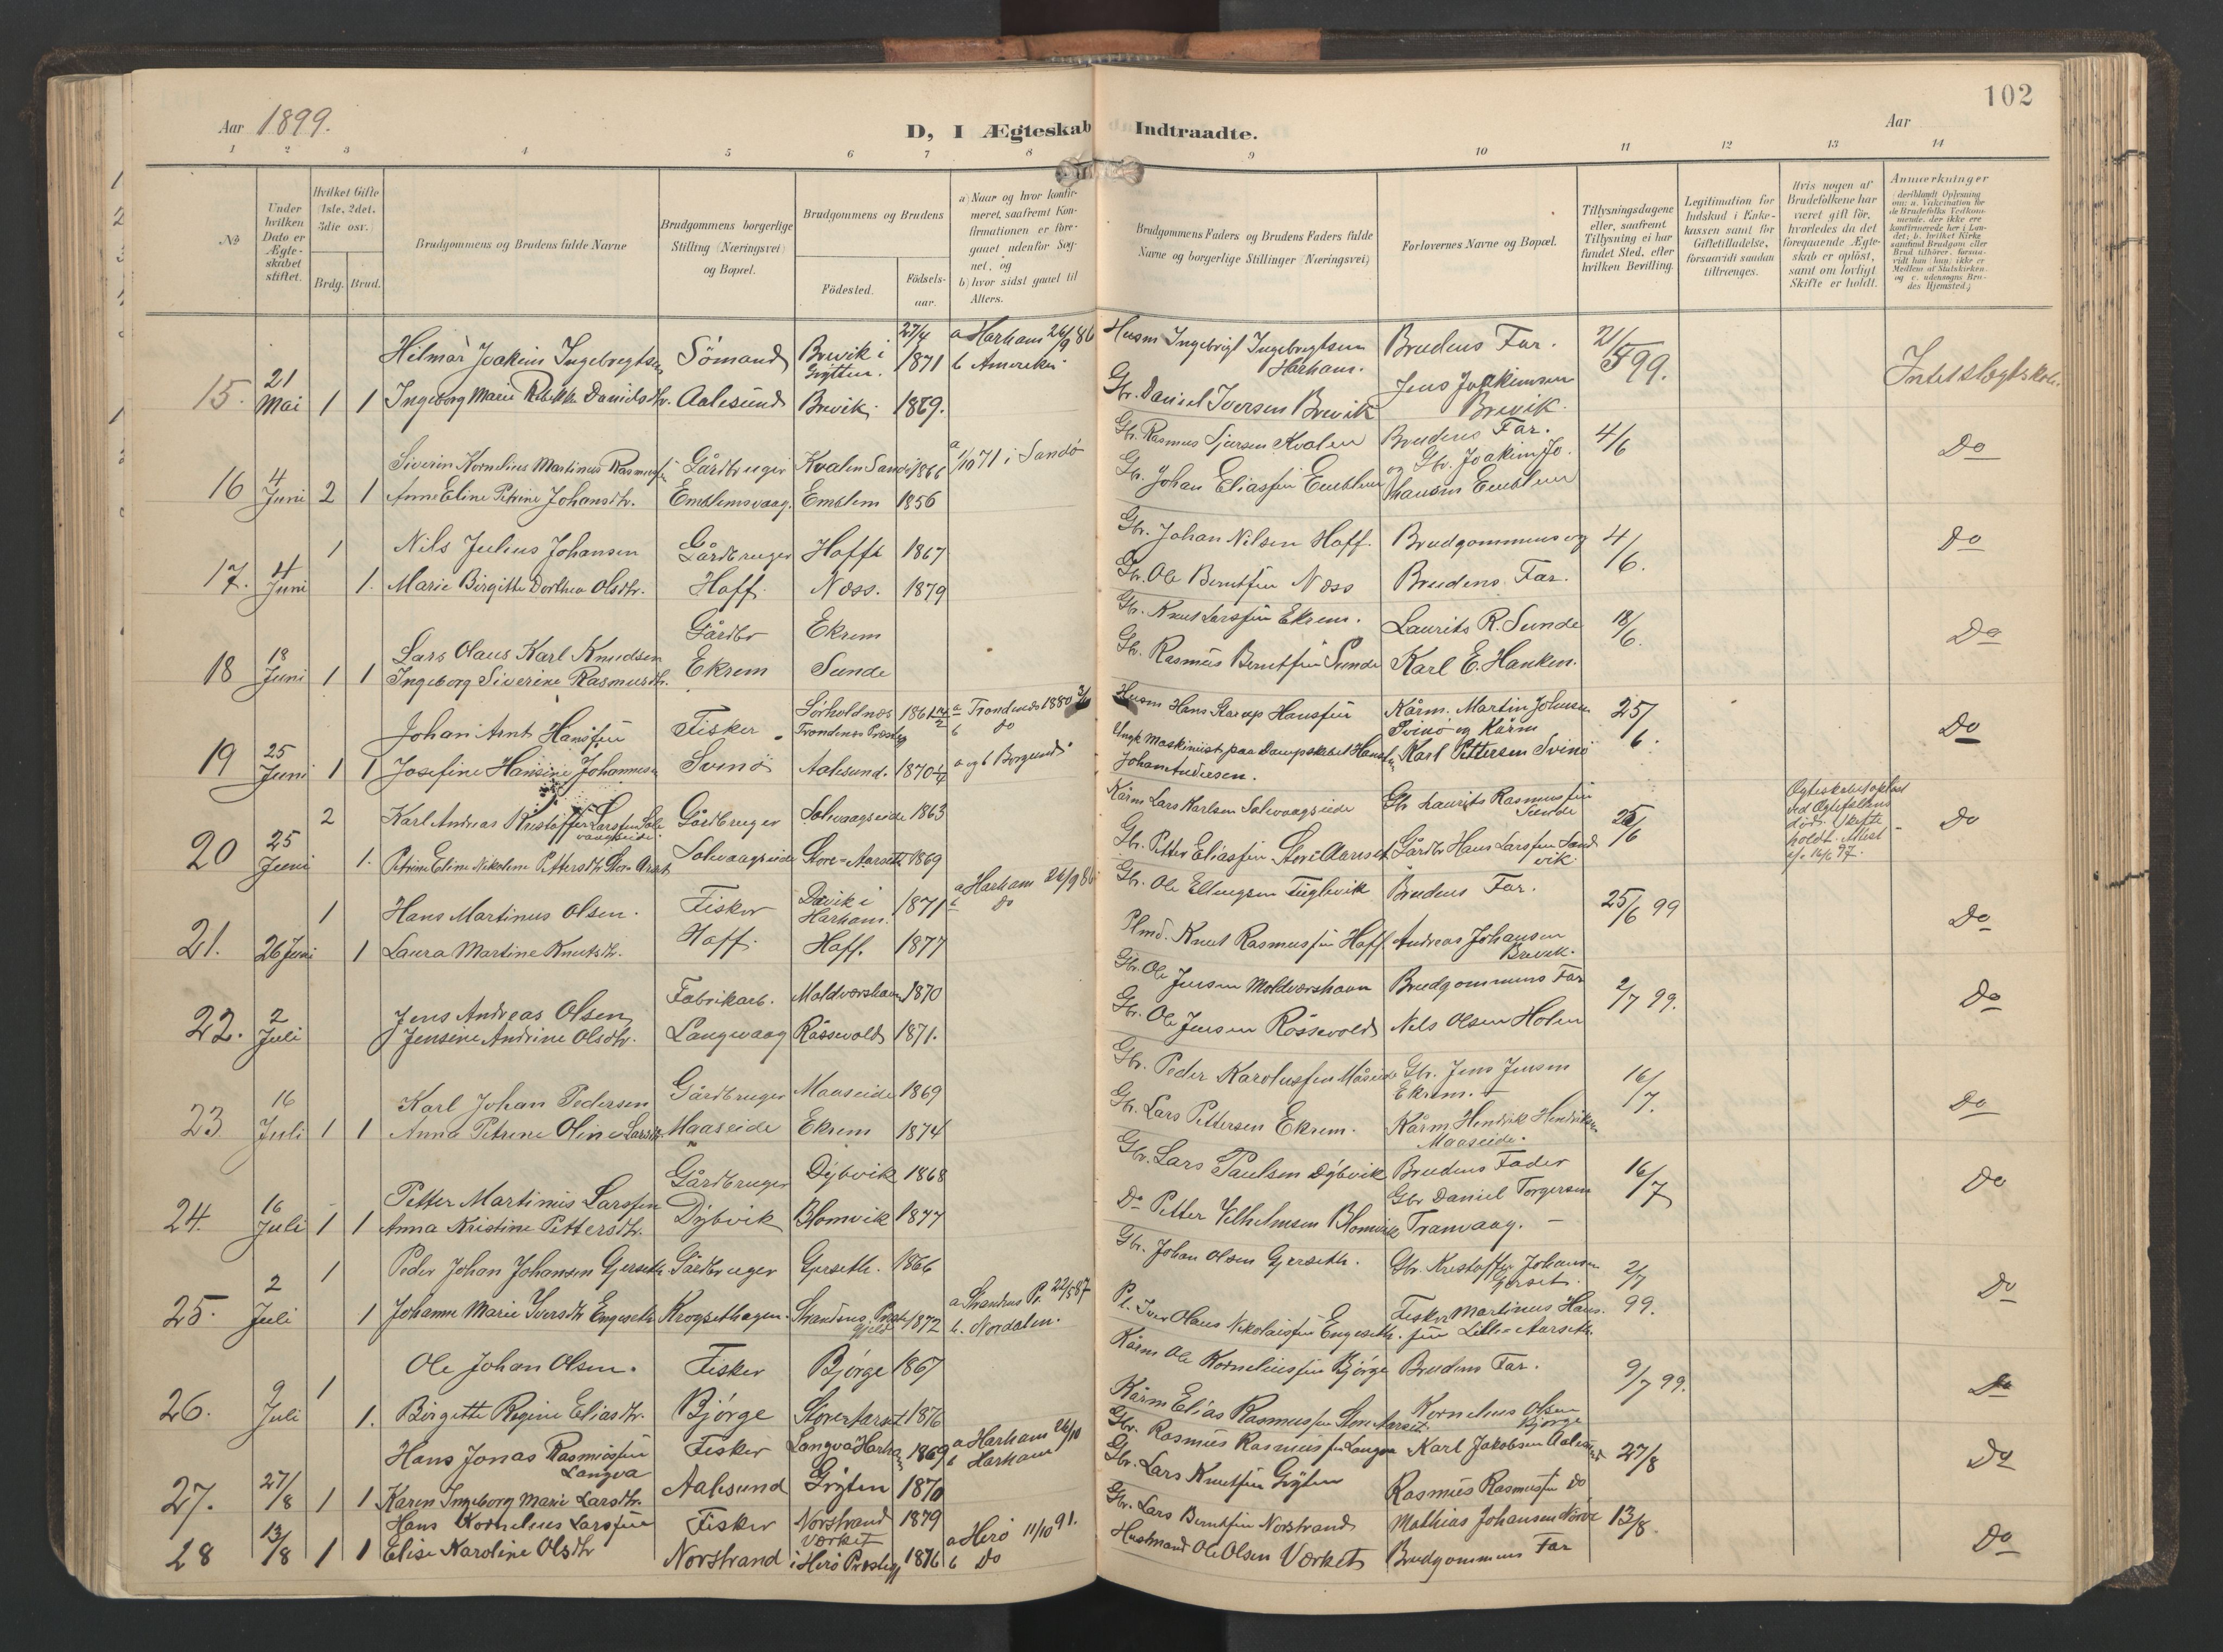 102
Aar 1899.
D, I Ægteskab Indtraadte.
Aar
1 2 3 4 5 6 7 8 9 10 11 12 13 14
No
Under hvilken Dato er Ægteskabet stiftet.
Hvilket Gifte (1ste, 2det, 3die osv.
Brdg. Brud.
Brudgommens og Brudens fulde Navne
Brudgommens borgerlige Stilling (Næringsvei) og Bopæl.
Brudgommens og Brudens
Födested.
Födselsaar.
a) Naar og hvor konfirmeret, saafremt Konfirmationen er foregaaet udenfor Sognet, og
b) hvor sidst gaaet til Alters.
Brudgommens Faders og Brudens Faders fulde Navne og borgerlige Stillinger (Næringsvei)
Forlovernes Navne og Bopæl.
Tillysningsdagene eller, saafremt Tillysning ei har fundet Sted, efter hvilken Bevilling.
Legitimation for Indskud i Enkekassen samt for Giftetilladelse, forsaavidt saadan tiltrænges.
Hvis nogen af Brudefolkene har været gift för, hvorledes da det foregaaende Ægteskab er oplöst, samt om lovligt Skifte er holdt.
Anmærkninger
15. 21 Mai 1 1
Hilmar Joakim Ingebregtsen Sömand Brevik i Grytten. 27/4 1871 a Harham 26/9 86 b Amerika
Husm Ingebrigt Ingebregtsen Harham. Brudens Far. 21/5 99. Intet slegtskab.
Ingeborg Marie Rebekka Danielsdtr. Aalesund Brevik 1869.
Gbr. Daniel Iversen Brevik Jens Joakimsen Brevik.
16 4 Juni 2 1
Siverin Kornelius Martinus Rasmussen Gårdbruger Kvalen Sandö 1866 a 1/10 71 i Sandö
Gbr. Rasmus Sjursen Kvalen Brudens Far. 4/6 Do
Anne Eline Petrine Johansdtr. Emblemsvaag. Emblem 1856
Gbr. Johan Eliassen Emblem og Gbr. Joakim Johansen Emblem
17. 4 Juni 1 1.
Nils Julius Johansen Gårdbruger Hoff 1867
Gbr. Johan Nilsen Hoff. Brudgommens og 4/6. Do
Marie Birgitte Dorthea Olsdtr. Hoff. Næss. 1879
Gbr. Ole Berntsen Næss Brudens Far.
18 18 Juni 1 1
Lars Olaus Karl Knudsen Gårdbr Ekrem
Gbr. Knut Larssen Ekrem. Laurits R. Sunde 18/6. Do
Ingeborg Siverine Rasmusdtr. Ekrem Sunde
Gbr. Rasmus Berntsen Sunde Karl E. Hanken.
19 25 Juni 1 1
Johan Arnt Hanssen Fisker Trondenæs Prestegj 1861 a Trondenæs 1880 b do
Husm Hans Hanssen Kårm. Martin Johnsen Svinö og Kårm 25/6. Do
Josefine Hansine Johannesen Svinö Aalesund. 1870 a og b Borgund
Ungk Maskinist paa Dampskibet Johan Andresen. Karl Pettersen Svinö
20 25 Juni 2 1.
Karl Andreas Kristoffer Larssen Solevaagseide Gårdbruger Solevaagseide 1863
Kårm Lars Karlsen Solevaagseide Gbr Laurits Rasmussen Sunde 25/6 Do
Ægteskabet oplöst ved Ægtefællens död. Skifte holdt. Attest 16/6 97.
Petrine Eline Nikoline Pettersdtr Store Aarset Solevaagseide Store-Aarseth 1869
Gbr. Petter Eliassen Store Aarset Gårdbr Hans Larssen Sandvik.
21. 26 Juni 1 1
Hans Martinus Olsen. Fisker Harham. 1871 a Harham 26/9 86 b do
Gbr. Ole Ellingsen Fuglevik Brudens Far. 25/6 99 Do
Laura Martine Knutsdtr. Hoff. Hoff. 1877
Plmd. Knut Rasmussen Hoff Andreas Johansen Brevik.
22. 2 Juli
Jens Andreas Olsen Fabrikarb. Moldværshavn 1870
Gbr. Ole Jensen Moldværshavn Brudgommens Far 2/7 99. Do
Jensine Andrine Olsdtr. Langevaag Rössevold 1871.
Gbr. Ole Jensen Rössevold Nels Olsen Holen
23 16 Juli 1 1
Karl Johan Pedersen Gårdbruger Maaseide 1869
Gbr. Peder Karolussen Måseide Gbr. Jens Jensen Ekrem. 16/7. Do
Anna Petrine Oline Larsdtr. Maaseide Ekrem 1874
Gbr. Lars Pettersen Ekrem. Kårm Hendrik Hendriksen Maaseide.
24. 16 Juli 1 1
Petter Martinus Larssen Gårdbruger Dybvik 1868
Gbr. Lars Paulsen Dybvik Brudens Fader 16/7 Do
Anna Kristine Pettersdtr. Dybvik Blomvik 1877
Do Petter Vilhelmsen Blomvik Gbr Daniel Torgersen Tranvaag.
25. 2 Juli 1 1
Peder Johan Johansen Gjerseth Gårdbruger Gjerseth. 1866
Gbr. Johan Olsen Gjerseth. Gbr. Kristoffer Johansen Gjerset. 2/7 99. Do
Johanne Marie Iversdtr Engeseth Krogsethagen. Strandens Prestegjeld 1872 a Strandens Pr. 22/5 87 b. Nordalen.
Pl. Iver Olaus Nikolaissen Engeseth. Fisker Martinus Hanssen Litle-Aarseth.
26. 9 Juli 1 1.
Ole Johan Olsen. Fisker Björge 1867
Kårm Ole Korneliussen Björge Brudens Far. 9/7 99. Do
Birgitte Regine Eliasdtr. Bjørge Store Aarset 1876
Kårm Elias Rasmussen Store Aarset. Kornelius Olsen Bjørge
27. 27/8 1 1
Hans Jonas Rasmussen Langva Fisker Langva Harham 1869 a Harham 26/10 b Harham
Gbr. Rasmus Rasmussen Langva Karl Jakobsen Aalesund 27/8 Do
Karen Ingeborg Marie Larsdtr. Aalesund Gryten 1870
Gbr. Lars Knutsen Gryten Rasmus Rasmussen Do
28 13/8 1 1
Hans Kornelius Larssen Fisker Norstrand 1879
Gbr. Lars Berntsen Norstrand Mathias Johansen Nörve 13/8. Do
Elise Karoline Olsdtr Norstrand Værket i Herö Prestegj 1876 a Herö 11/10 91. b Do
Husmand Ole Olsen Værket Brudgommens Far